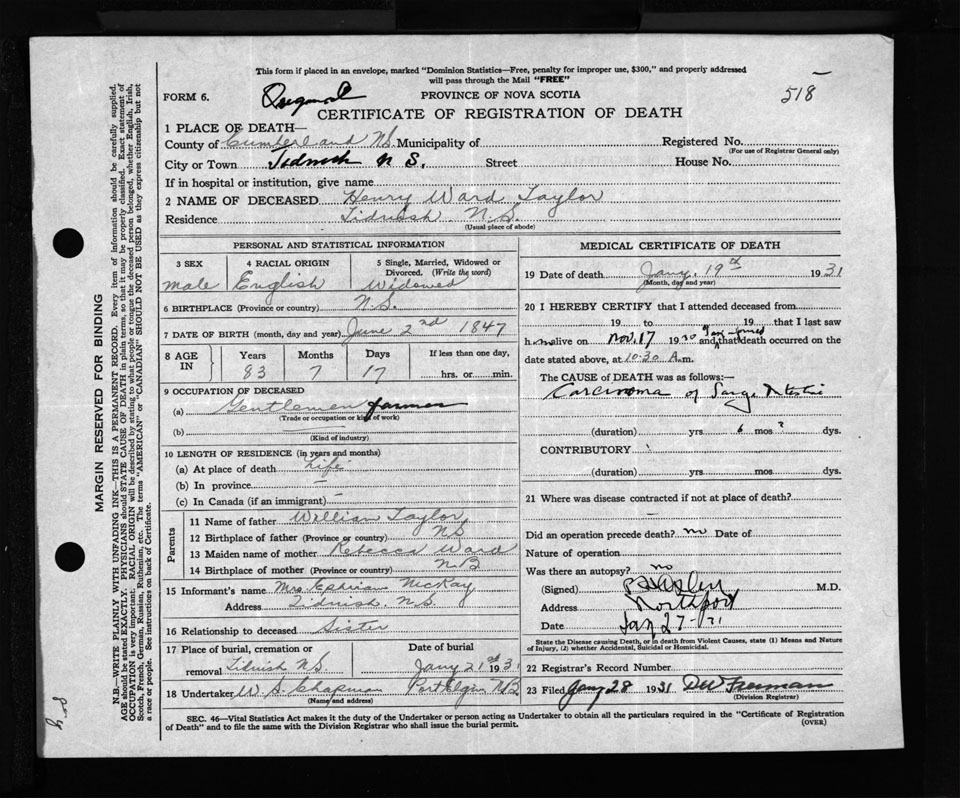 This form if placed in an envelope, marked "Dominion Statistics—Free, penalty for improper use, $300," and properly addressed
will pass through the Mail "FREE"
FORM 6.
PROVINCE OF NOVA SCOTIA
518
CERTIFICATE OF REGISTRATION OF DEATH
1 PLACE OF DEATH—
County of Cumberland N.S. Municipality of
Registered No.
(For use of Registrar General only)
City or Town Tidnish N S. Street House No.
If in hospital or institution, give name
2 NAME OF DECEASED Henry Ward Taylor
Residence Tidnish N.S.
(Usual place of abode)
PERSONAL AND STATISTICAL INFORMATION
3 SEX 4 RACIAL ORIGIN 5 Single, Married, Widowed or
Divorced. (Write the word)
male English Widowed
6 BIRTHPLACE (Province or country) N.S.
7 DATE OF BIRTH (month, day and year) June 2nd 1847
8 AGE IN Years Months Days If less than one day,
83 7 17 hrs. or min.
9 OCCUPATION OF DECEASED
(a) Gentlemen farmer
(Trade or occupation or kind of work)
(b)
(Kind of industry)
10 LENGTH OF RESIDENCE (in years and months)
(a) At place of death Life
(b) In province
(c) In Canada (if an immigrant)
Parents
11 Name of father William Taylor
12 Birthplace of father (Province or country) NS
13 Maiden name of mother Rebecca Ward
14 Birthplace of mother (Province or country) N.B
15 Informant's name Mrs Ephriam McKay
Address Tidnish. N.S.
16 Relationship to deceased Sister
17 Place of burial, cremation or Date of burial
removal Tidnish N.S. Jany 21st 1931
18 Undertaker W. S. Chapman Port Elgin N.B
(Name and address)
MEDICAL CERTIFICATE OF DEATH
19 Date of death Jany. 19th 1931
(Month, day and year)
20 I HEREBY CERTIFY that I attended deceased from
19 to 19 that I last saw
him alive on Nov. 17 1930 and that death occurred on the
date stated above, at 10.30 A.m.
The CAUSE of DEATH was as follows:—
Carcinoma of
(duration) yrs 6 mos ? dys.
CONTRIBUTORY
(duration) yrs. mos. dys.
21 Where was disease contracted if not at place of death?
Did an operation precede death? no Date of
Nature of operation
Was there an autopsy? no
(Signed) M.D.
Address Northport
Date Jan 27-31
State the Disease causing Death, or in death from Violent Causes, state (1) Means and Nature
of Injury, (2) whether Accidental, Suicidal or Homicidal.
22 Registrar's Record Number
23 Filed Jany 28 1931 D W Freeman
(Division Registrar)
SEC. 46—Vital Statistics Act makes it the duty of the Undertaker or person acting as Undertaker to obtain all the particulars required in the "Certificate of Registration
of Death" and to file the same with the Division Registrar who shall issue the burial permit. (OVER)
MARGIN RESERVED FOR BINDING
N.B.—WRITE PLAINLY WITH UNFADING INK—THIS IS A PERMANENT RECORD. Every item of information should be carefully supplied.
AGE should be stated EXACTLY. PHYSICIANS should STATE CAUSE OF DEATH in plain terms, so that it may be properly classified. Exact statement of
OCCUPATION is very important. RACIAL ORIGIN will be described by stating to what people or tongue the deceased person belonged, whether English, Irish,
Scotch, French, German, Russian, Ruthenian, etc. The terms "AMERICAN" or "CANADIAN" SHOULD NOT BE USED as they express citizenship but not
a race or people. See instructions on back of Certificate.